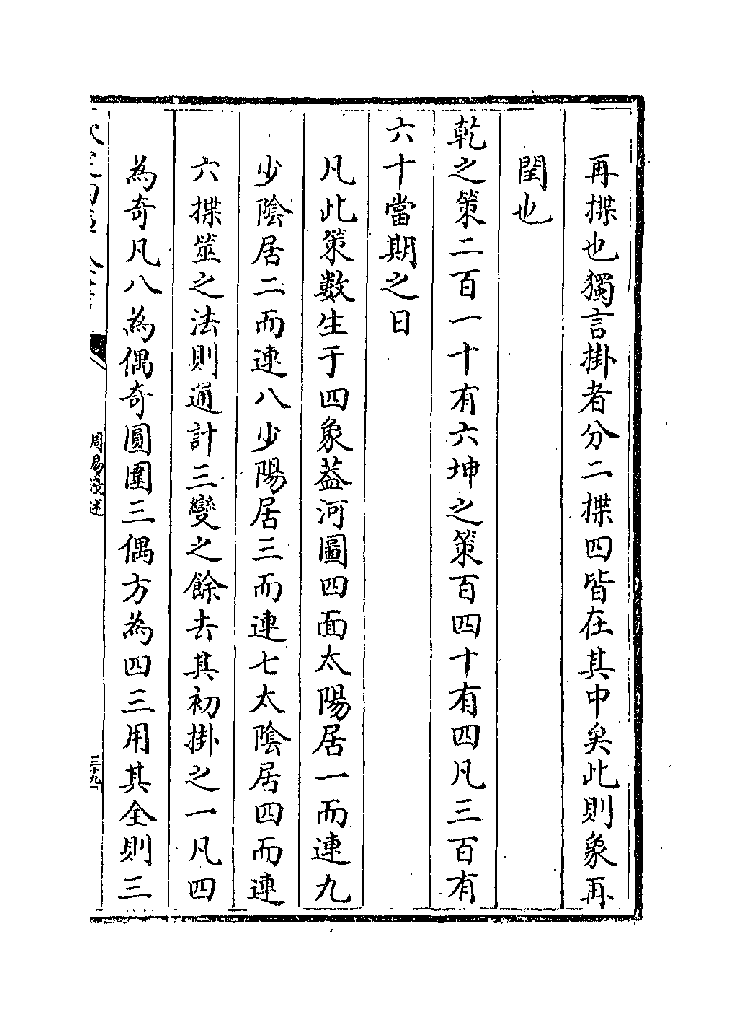 再揲也獨言掛者分二揲四皆在其中矣此則象再
閏也
乾之策二百一十有六坤之策百四十有四凡三百有
六十當期之日
凡此策數生于四象葢河圖四面太陽居一而連九
少陰居二而連八少陽居三而連七太陰居四而連
六揲筮之法則通計三變之餘去其初掛之一凡四
為奇凡八為偶奇圓圍三偶方為四三用其全則三